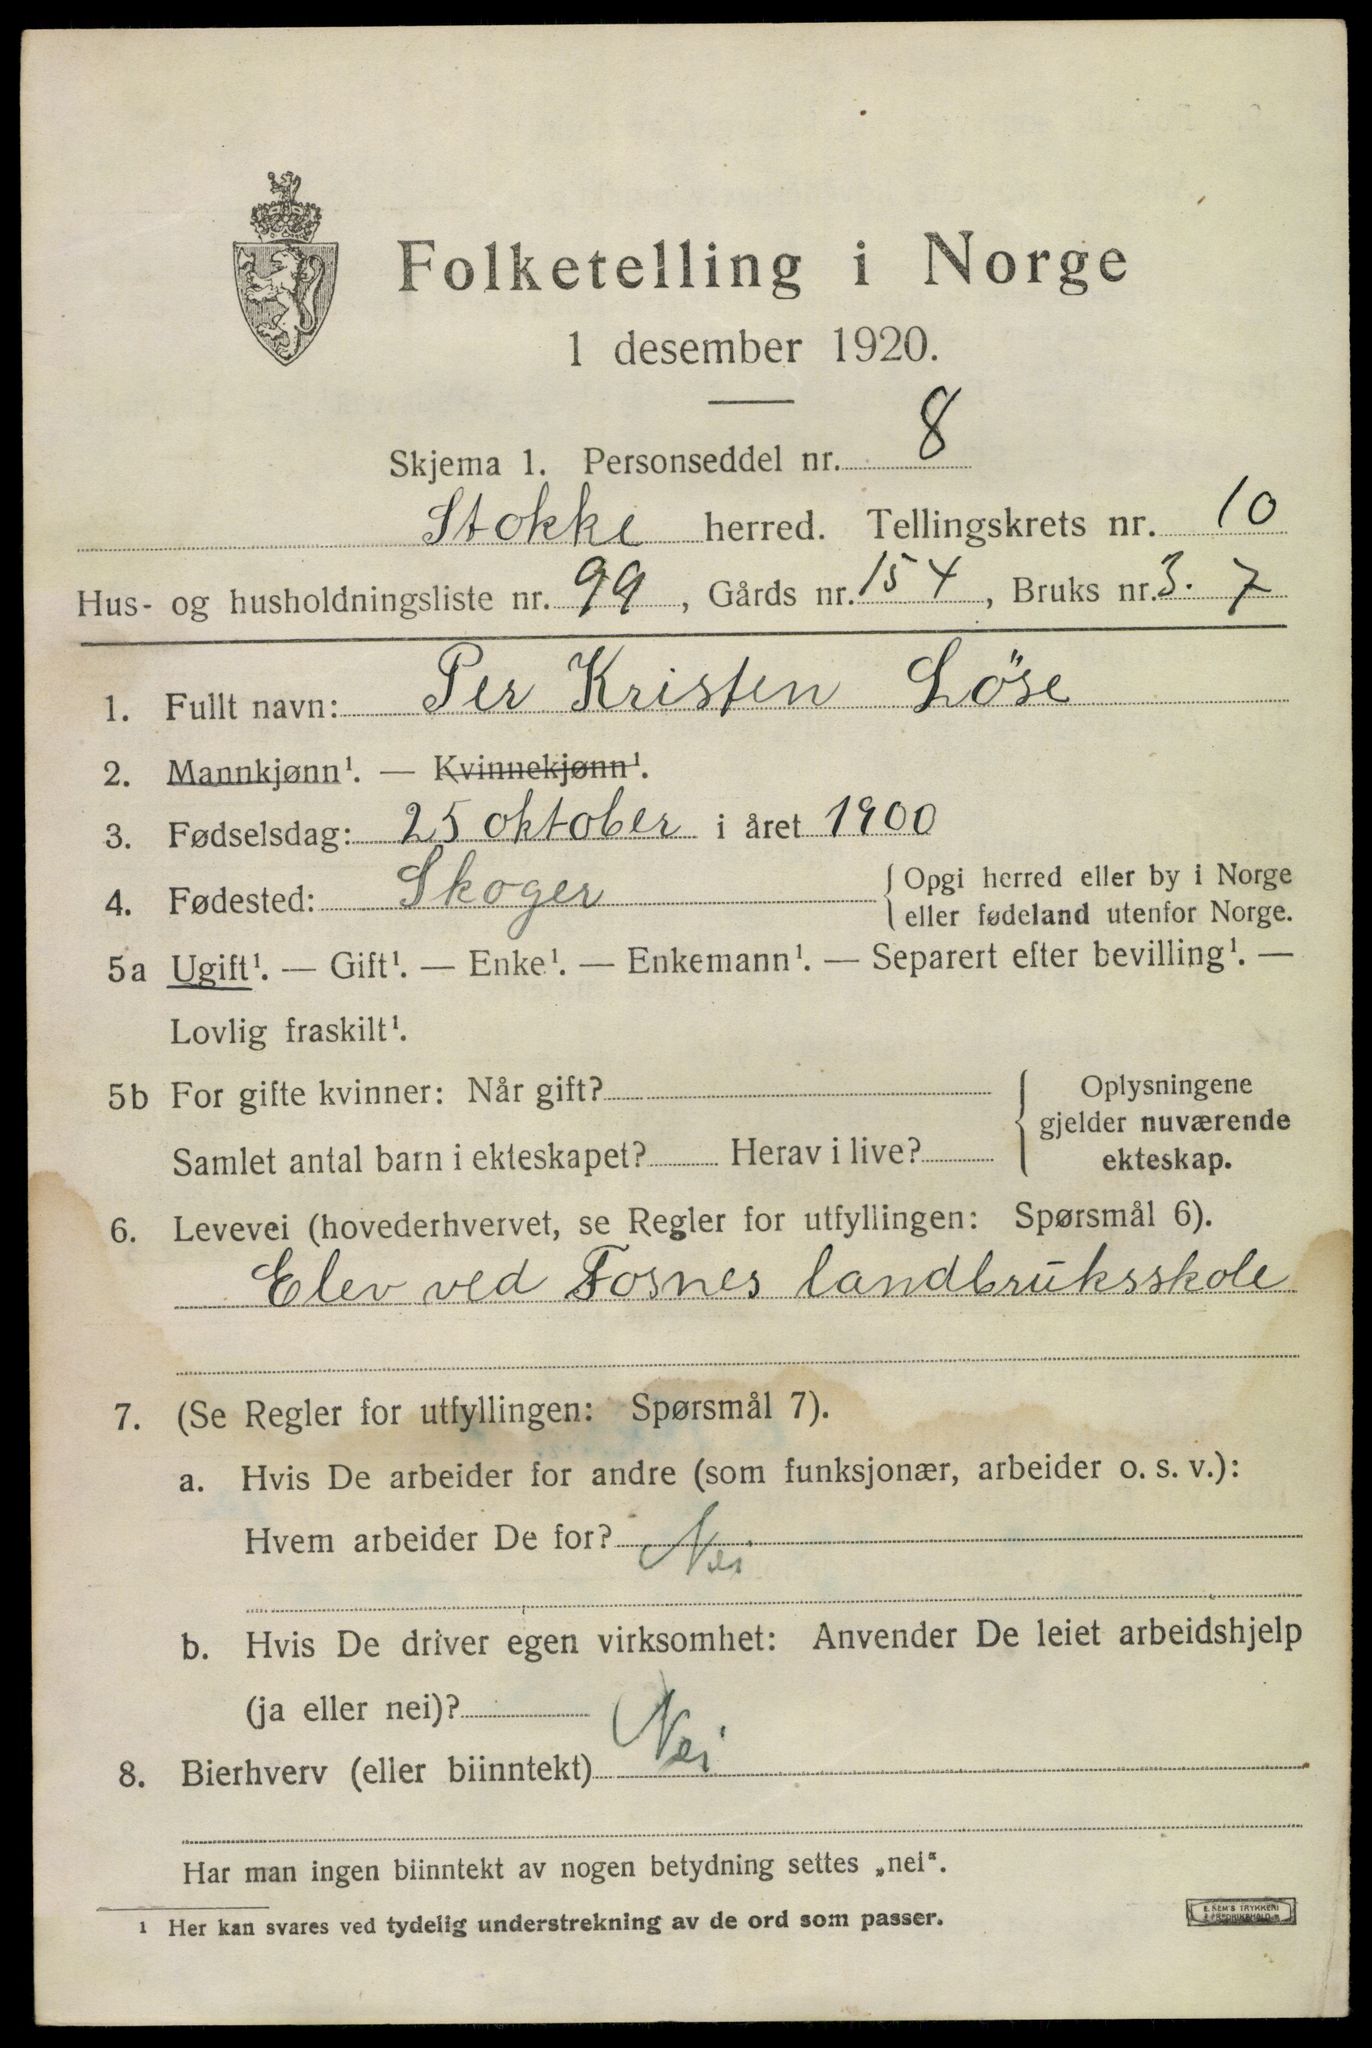 Folketelling i Norge
1 desember 1920.
Skjema 1. Personseddel nr. 8
Stokke herred. Tellingskrets nr. 10
Hus- og husholdningsliste nr. 99, Gårds nr. 154, Bruks nr. 3. 7
1. Fullt navn: Per Kristen Löse
2. Mannkjønn¹. — Kvinnekjønn¹.
3. Fødselsdag: 25 oktober i året 1900
4. Fødested: Skoger { Opgi herred eller by i Norge
eller fødeland utenfor Norge.
5a Ugift¹. — Gift¹. — Enke¹. — Enkemann¹. — Separert efter bevilling¹. —
Lovlig fraskilt¹.
5b For gifte kvinner: Når gift? { Oplysningene
gjelder nuværende
Samlet antal barn i ekteskapet? Herav i live? ekteskap.
6. Levevei (hovederhvervet, se Regler for utfyllingen: Spørsmål 6).
Elev ved Fosnes landbruksskole
7. (Se Regler for utfyllingen: Spørsmål 7).
a. Hvis De arbeider for andre (som funksjonær, arbeider o. s. v.):
Hvem arbeider De for? Nei
b. Hvis De driver egen virksomhet: Anvender De leiet arbeidshjelp
(ja eller nei)?
8. Bierhverv (eller biinntekt) Nei
Har man ingen biinntekt av nogen betydning settes „nei".
¹ Her kan svares ved tydelig understrekning av de ord som passer.